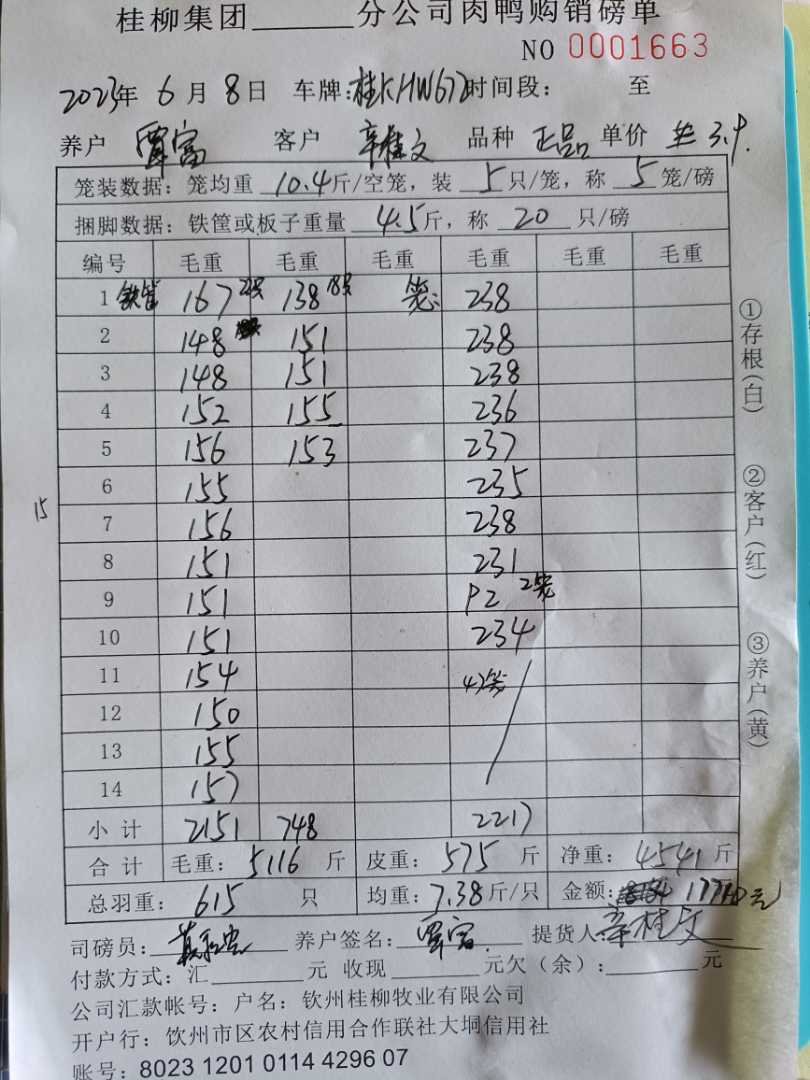 桂柳集团______分公司肉鸭购销磅单
NO 0001663
2023年 6月 8日 车牌:桂KHW672 时间段: 至
养户 覃富 客户 辛桂文 品种 正品 单价 3.9
笼装数据: 笼均重 10.4斤/空笼, 装 5只/笼, 称 5笼/磅
捆脚数据: 铁筐或板子重量 4.5斤, 称 20 只/磅
编号 毛重 毛重 毛重 毛重 毛重 毛重
1 铁筐 167 138 18只 笼: 238
2 148 151 238
3 148 151 238
4 152 155 236
5 156 153 237
6 155 235
15
7 156 238
8 151 231
9 151 92 2笼
10 151 234
11 154 47笼
12 150
13 155
14 157
小计 2151 748 2217
合计 毛重: 5116 斤 皮重: 575 斤 净重: 4541 斤
总羽重: 615 只 均重: 7.38斤/只 金额: 元
司磅员: 养户签名: 覃富 提货人: 辛桂文
付款方式: 汇______元 收现______元欠(余): ______元
公司汇款帐号: 户名: 钦州桂柳牧业有限公司
开户行: 饮州市区农村信用合作联社大垌信用社
账号: 8023 1201 0114 4296 07
①存根(白) ②客户(红) ③养户(黄)